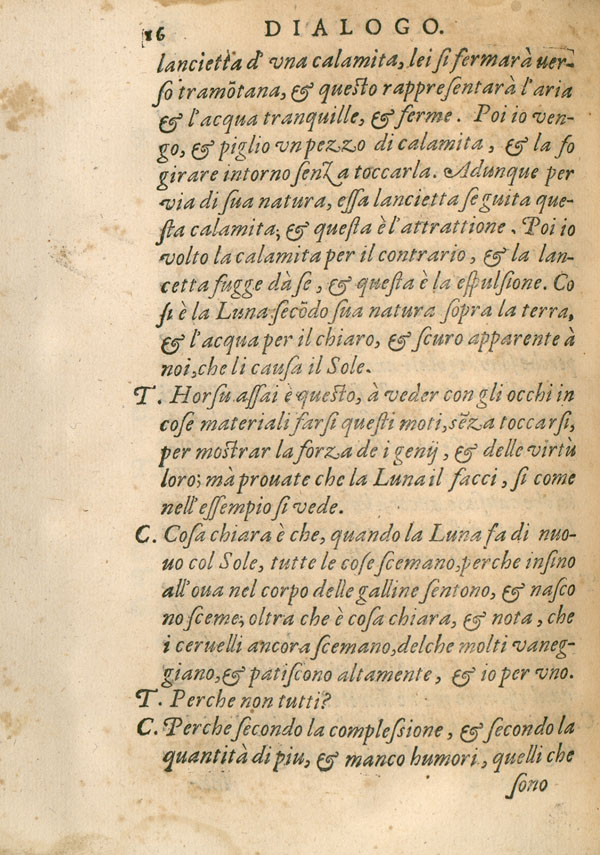 16 DIALOGO.
lancietta d' vna calamita, lei si fermarà uer-
so tramõtana, & questo rappresentarà l'aria
& l'acqua tranquille, & ferme. Poi io ven-
go, & piglio vn pezzo di calamita, & la fo
girare intorno senza toccarla. Adunque per
via di sua natura, essa lancietta seguita que-
sta calamita; & questa è l'attrattione. Poi io
volto la calamita per il contrario, & la lan-
cetta fugge dà se, & questa è la espulsione. Co
si è la Luna secõdo sua natura sopra la terra,
& l'acqua per il chiaro, & scuro apparente à
noi, che li causa il Sole.
T. Horsu assai è questo, à veder con gli occhi in
cose materiali farsi questi moti, sẽza toccarsi,
per mostrar la forza de i genij, & delle virtù
loro; mà prouate che la Luna il facci, si come
nell'essempio si vede.
C. Cosa chiara è che, quando la Luna fa di nuo-
uo col Sole, tutte le cose scemano, perche insino
all'oua nel corpo delle galline sentono, & nasco
no sceme; oltra che è cosa chiara, & nota, che
i ceruelli ancora scemano, delche molti vaneg-
giano, & patiscono altamente, & io per vno.
T. Perche non tutti?
C. Perche secondo la complessione, & secondo la
quantità di piu, & manco humori, quelli che
sono